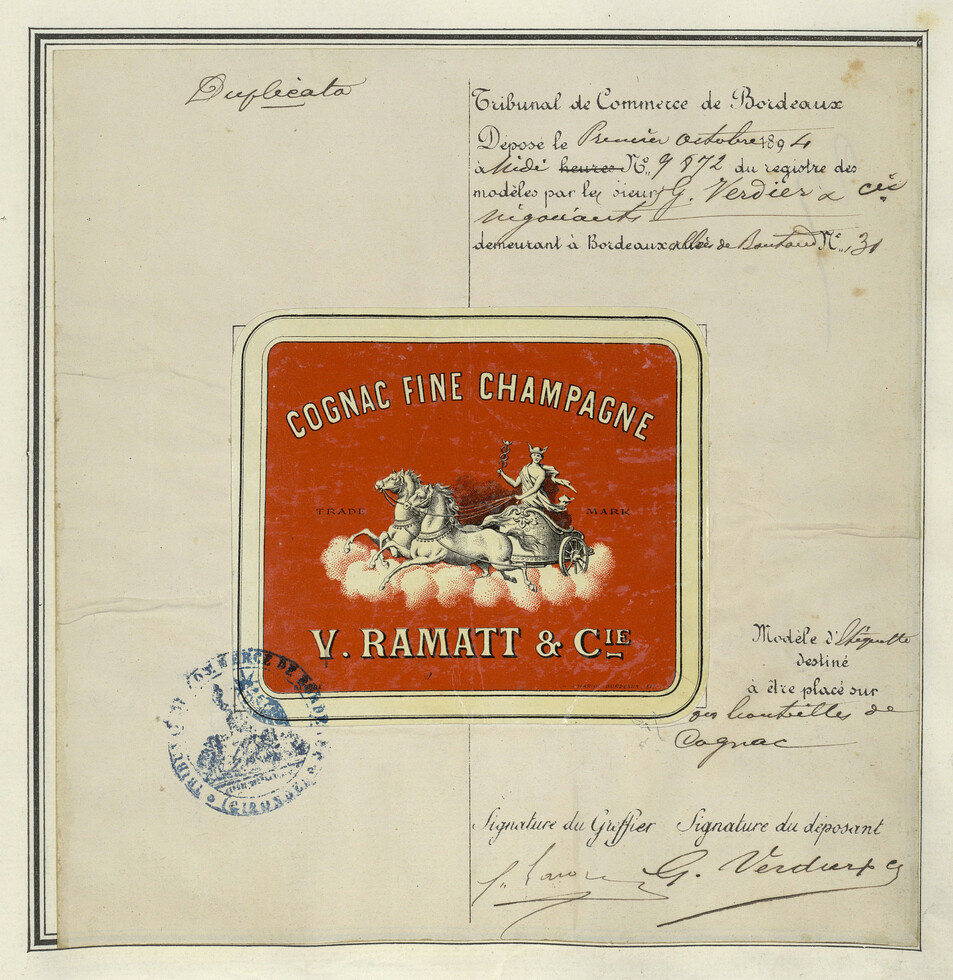 Duplicata
Tribunal de Commerce de Bordeaux
Déposé le Premier octobre 1894
à Midi heures N° 9872 du registre des
modèles par les sieurs G. Verdier & Cie
négociants
demeurant à Bordeaux allées de Boutaut N° 31
COGNAC FINE CHAMPAGNE
TRADE MARK
V. RAMATT & CIE
Modèle d'étiquette
destiné
à être placé sur
des bouteilles de
Cognac
TRIBUNAL DE COMMERCE DE BORDEAUX
(GIRONDE)
Signature du Greffier Signature du déposant
G. Verdier & Cie